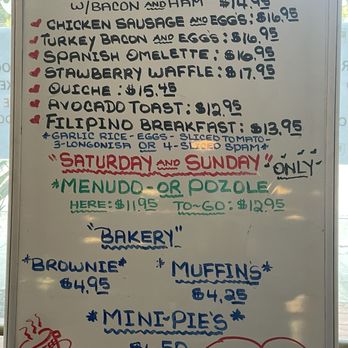 W/BACON AND HAM $14.95
CHICKEN SAUSAGE AND EGGS: $16.95
TURKEY BACON AND EGGS: $16.95
SPANISH OMELETTE: $16.95
STAWBERRY WAFFLE: $17.95
QUICHE: $15.45
AVOCADO TOAST: $12.95
FILIPINO BREAKFAST: $13.95
*GARLIC RICE - EGGS - SLICED TOMATO-
3-LONGONISA OR 4-SLICED SPAM*
"SATURDAY AND SUNDAY" ONLY
*MENUDO-OR POZOLE
HERE: $11.95 TO-GO: $12.95
"BAKERY"
*BROWNIE* *MUFFIN'S*
$4.95 $4.25
*MINI-PIE'S*